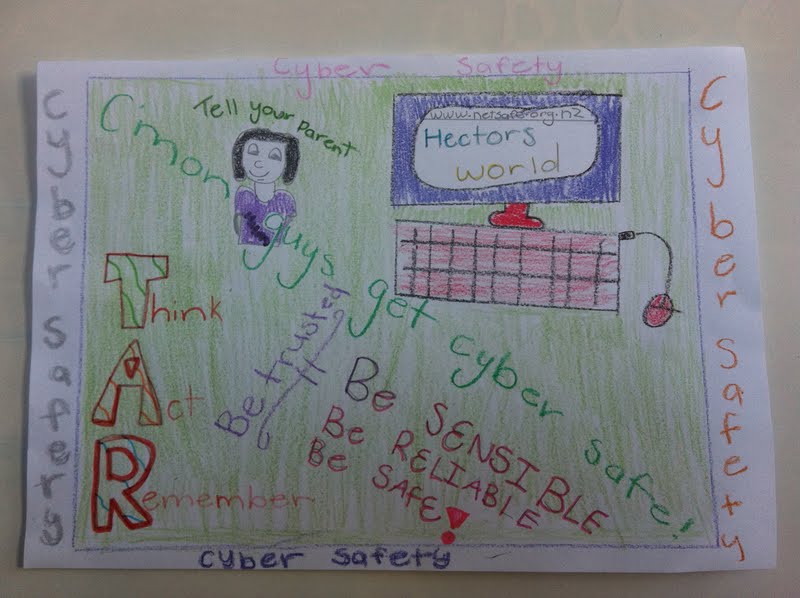 Cyber safety
Cyber safety
Cyber safety
Tell your parent
www.netsafe.org.nz
Hectors
world
C'mon guys get cyber safe!
Think
Act
Remember
Be trusted
Be SENSIBLE
Be RELIABLE
Be SAFE!
Cyber safety